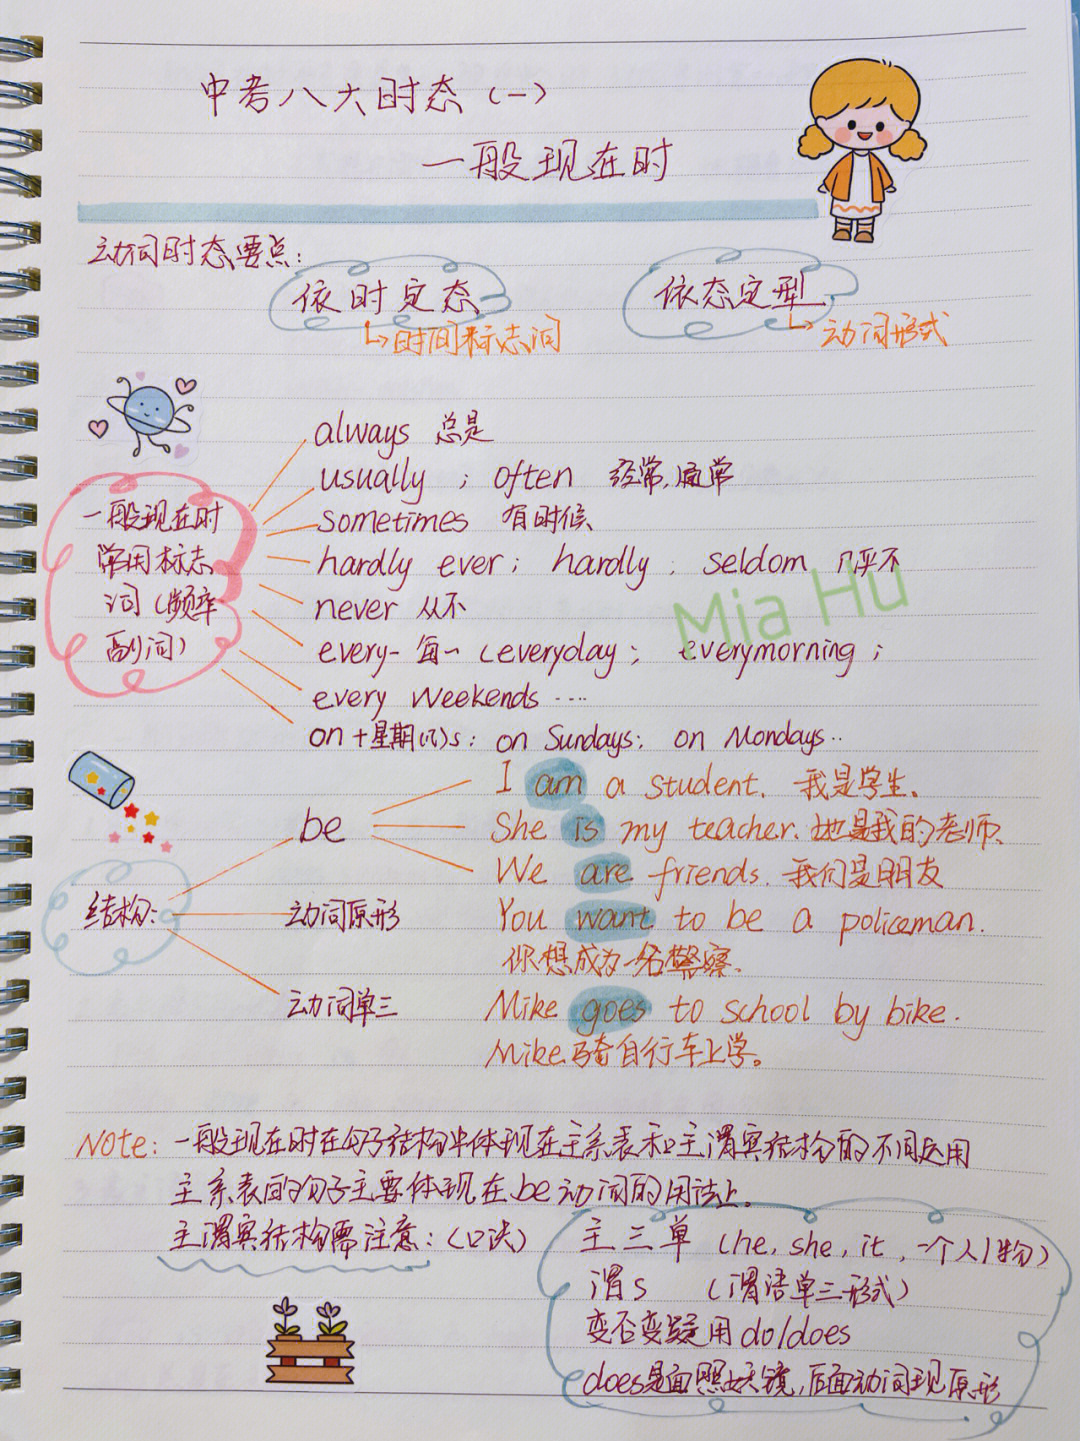 中考八大时态(一)
一般现在时
动词时态要点:
依时定态
依态定型
↳时间标志词
↳动词形式
always 总是
usually ; often 经常,通常
sometimes 有时候
hardly ever ; hardly ; seldom 几乎不
never 从不
every- 每一 (everyday ; everymorning ;
every weekends ....
on +星期(几)s ; on Sundays ; on Mondays..
一般现在时
常用标志
词(频率
副词)
Mia Hu
结构:
be
I am a student. 我是学生.
She is my teacher. 她是我的老师.
We are friends. 我们是朋友
动词原形
You want to be a policeman.
你想成为一名警察.
动词单三
Mike goes to school by bike.
Mike骑自行车上学。
Note: 一般现在时在句子结构中体现在主系表和主谓宾结构的不同运用
主系表的句子主要体现在be动词的用法上。
主谓宾结构需注意:(口诀)
主三单 (he, she, it, 一个人/物)
谓s (谓语单三形式)
变否变疑用do/does
does是面照妖镜,后面动词现原形